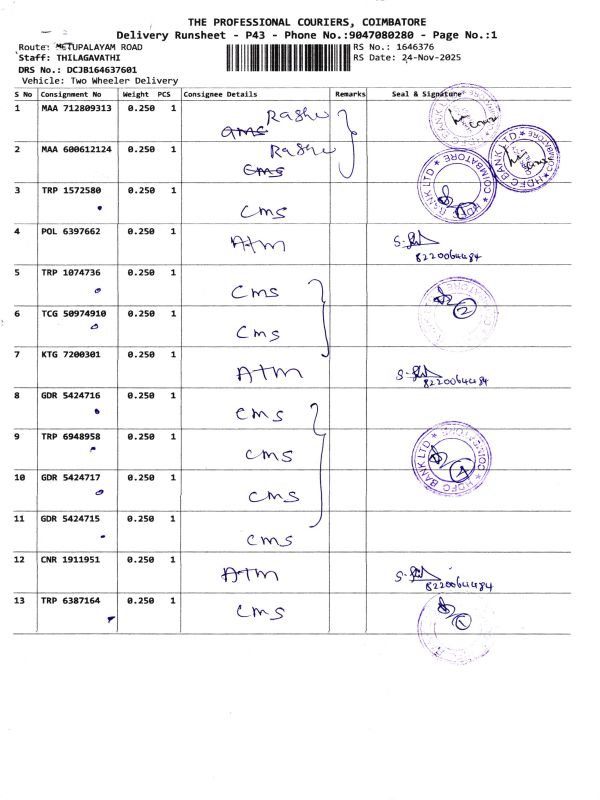 THE PROFESSIONAL COURIERS, COIMBATORE
Delivery Runsheet - P43 - Phone No.:9047080280 - Page No.:1
Route: METUPALAYAM ROAD RS No.: 1646376
Staff: THILAGAVATHI RS Date: 24-Nov-2025
DRS No.: DCJB164637601
Vehicle: Two Wheeler Delivery
S No Consignment No Weight PCS Consignee Details Remarks Seal & Signature
1 MAA 712809313 0.250 1
2 MAA 600612124 0.250 1
CMS
3 TRP 1572580 0.250 1 CMS
HDFC BANK LTD COIMBATORE
4 POL 6397662 0.250 1 ATM
8220064484
5 TRP 1074736 0.250 1 CMS
2
6 TCG 50974910 0.250 1 CMS
7 KTG 7200301 0.250 1 ATM
8220064484
8 GDR 5424716 0.250 1 CMS
9 TRP 6948958 0.250 1 CMS
HDFC BANK LTD COIMBATORE
4
10 GDR 5424717 0.250 1 CMS
11 GDR 5424715 0.250 1 CMS
12 CNR 1911951 0.250 1 ATM
8220064484
13 TRP 6387164 0.250 1 CMS
1